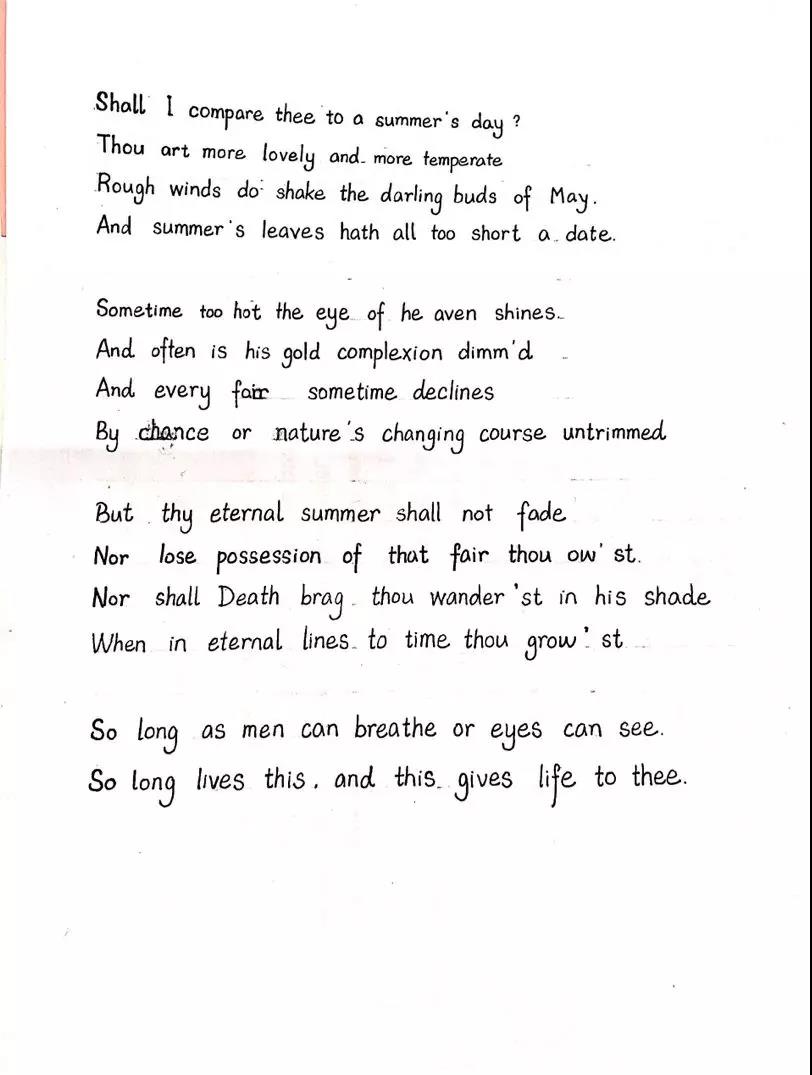 Shall I compare thee to a summer's day ?
Thou art more lovely and more temperate
Rough winds do shake the darling buds of May.
And summer's leaves hath all too short a date.
Sometime too hot the eye of he aven shines.
And often is his gold complexion dimm'd
And every fair sometime declines
By chance or nature's changing course untrimmed
But thy eternal summer shall not fade
Nor lose possession of that fair thou ow' st.
Nor shall Death brag thou wander 'st in his shade
When in eternal lines to time thou grow' st
So long as men can breathe or eyes can see.
So long lives this, and this gives life to thee.